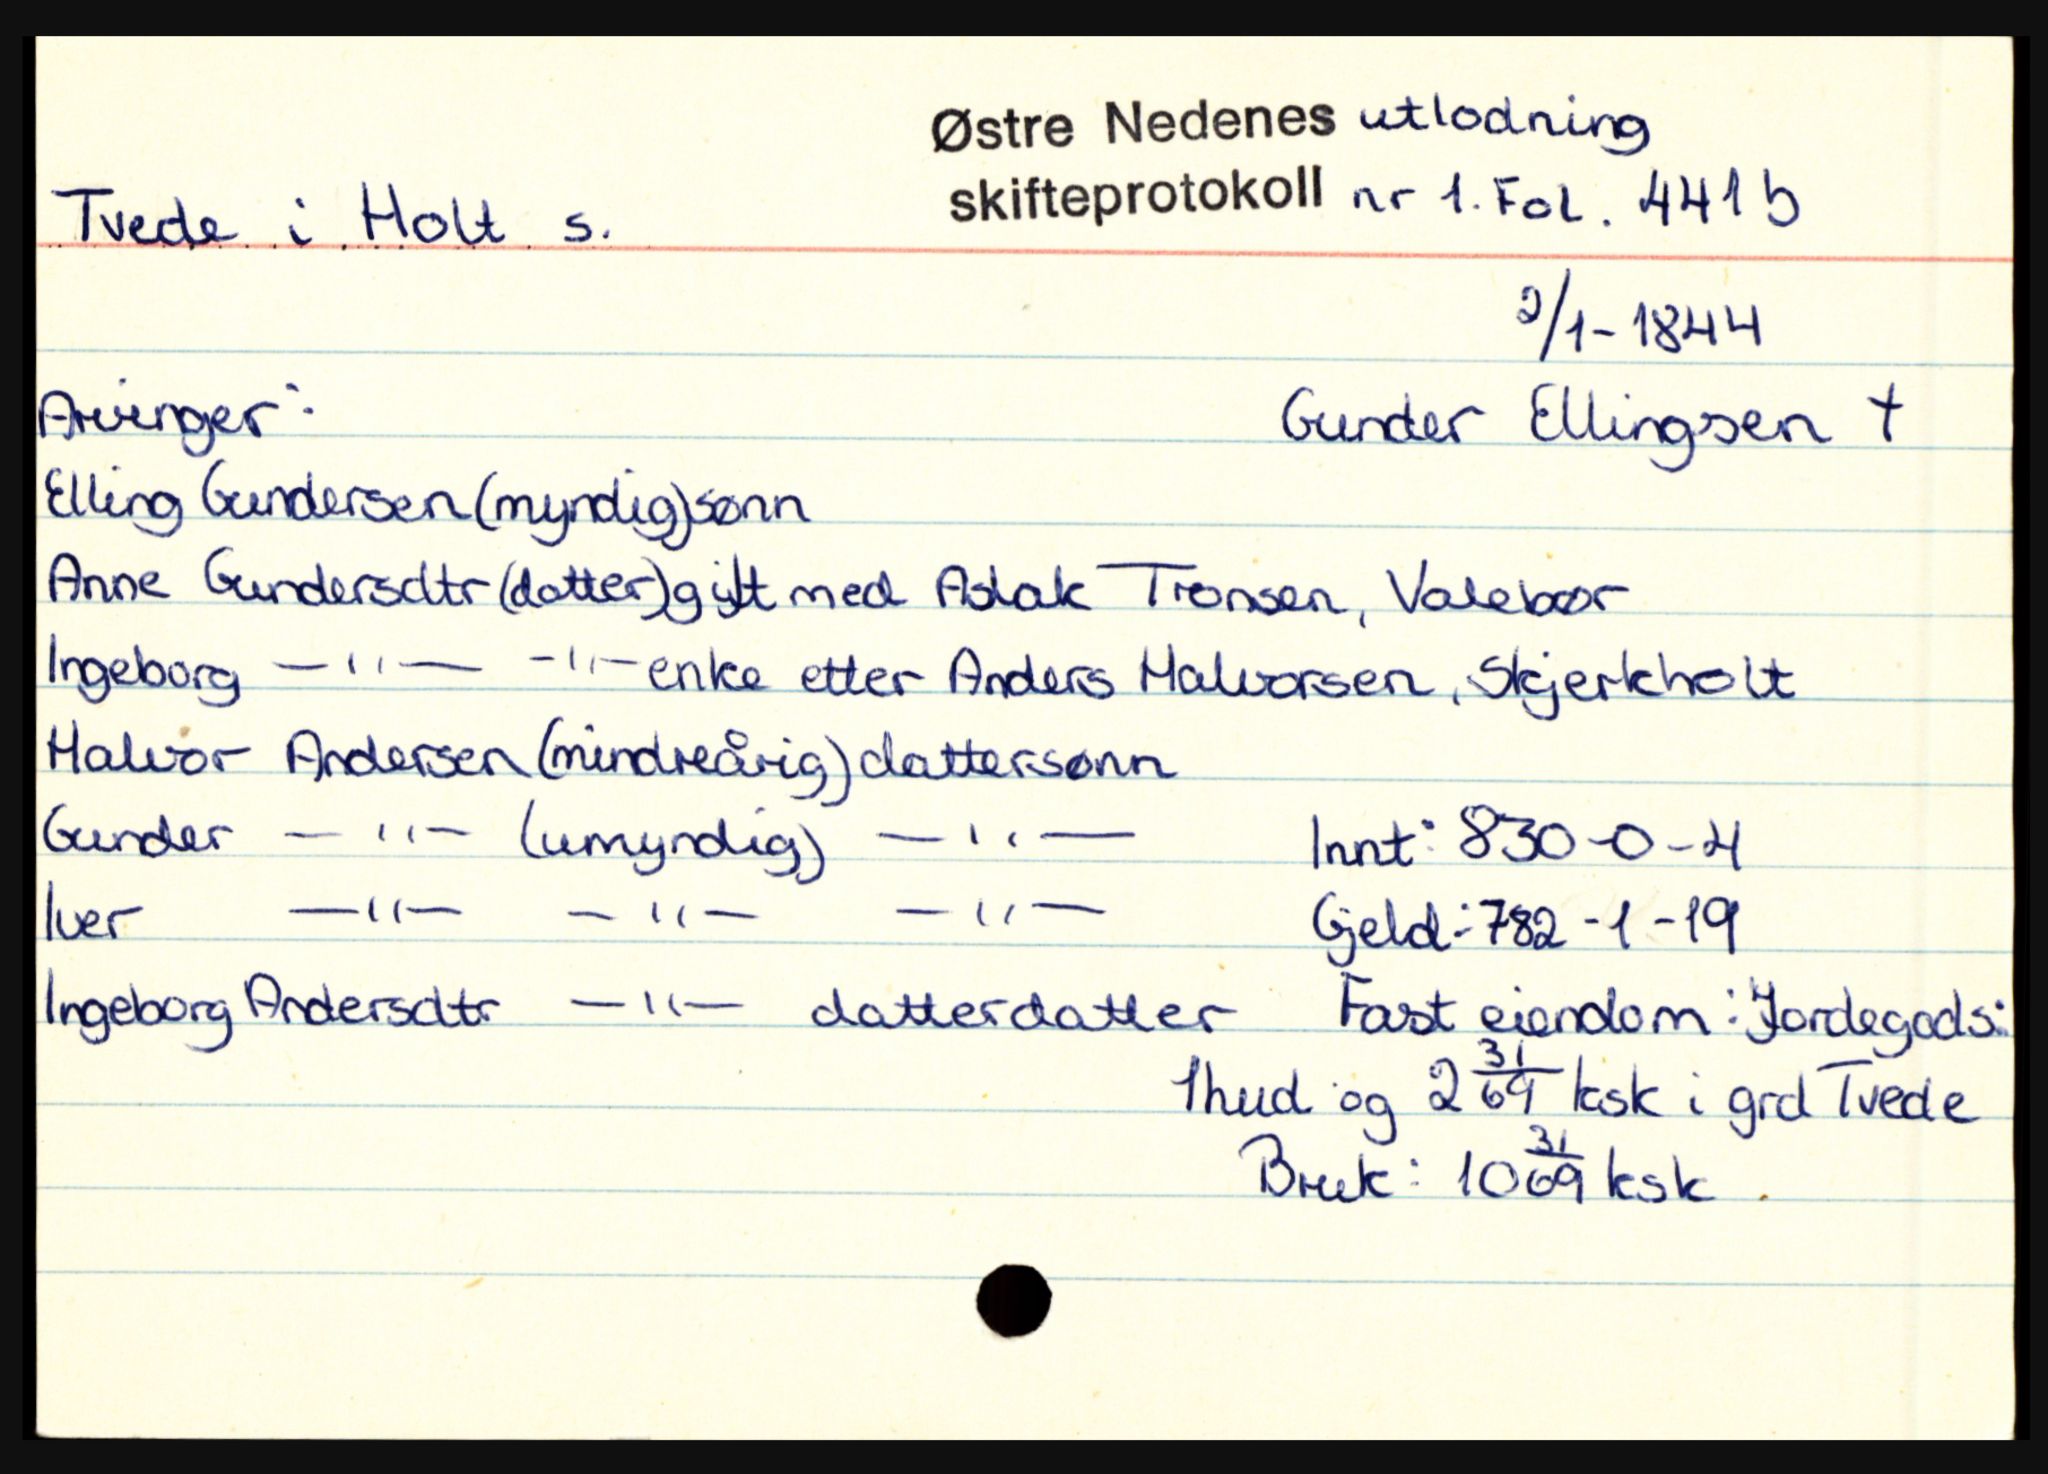 Østre Nedenes utlodning
Tvede i Holt s. skifteprotokoll nr 1. Fol. 441 b
2/1-1844
Arvinger: Gunder Ellingsen †
Elling Gundersen (myndig) sønn
Anne Gundersdtr (datter) gift med Aslak Tronsen, Valebør
Ingeborg —"— —"— enke etter Anders Halvorsen, Skjerkholt
Halvor Andersen (mindreårig) dattersønn
Gunder —"— (umyndig) —"— Innt: 830-0-4
Iver —"— —"— —"— Gjeld: 782-1-19
Ingeborg Andersdtr —"— datterdatter Fast eiendom: Jordegods:
1 hud og 2 31/69 ksk i grd Tvede
Bruk: 10 31/69 ksk